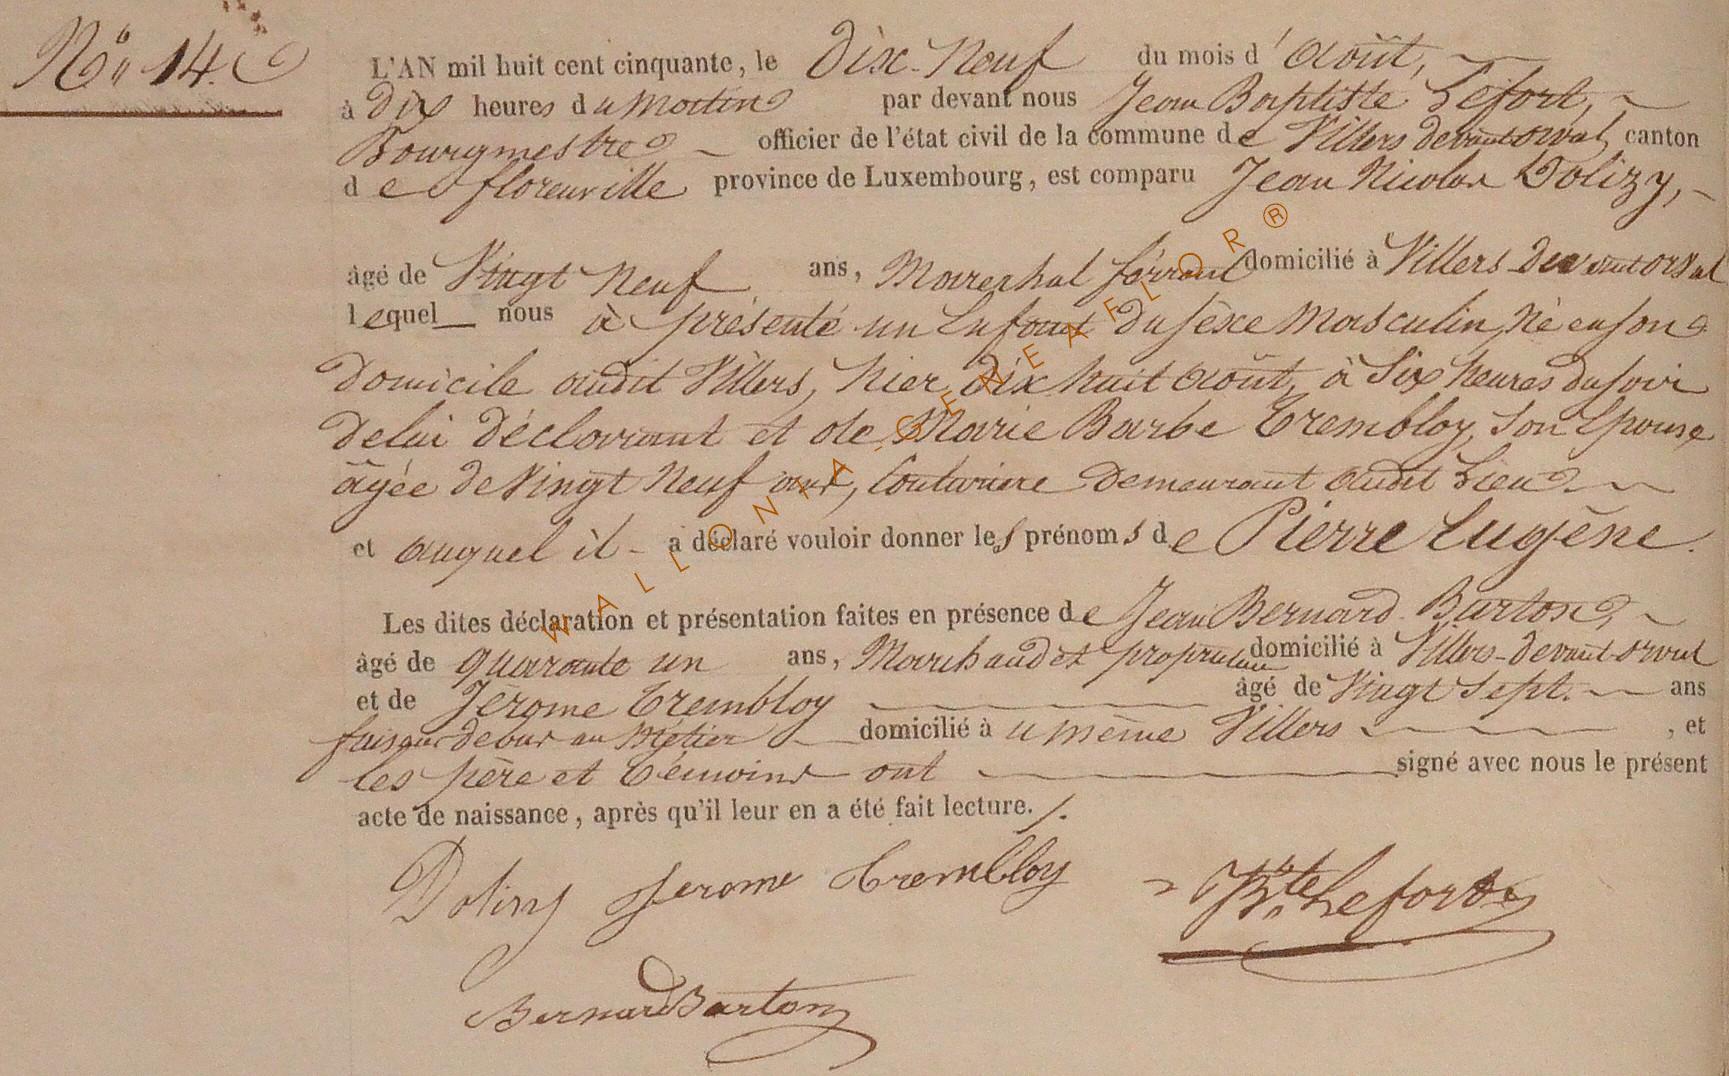 N° 14.
L'AN mil huit cent cinquante, le Dix-Neuf du mois d'Août,
à Dix heures du Matin par devant nous Jean Baptiste Lefort,
Bourgmestre officier de l'état civil de la commune de Villers devant orval, canton
de florenville province de Luxembourg, est comparu Jean Nicolas Dolizy,
âgé de Vingt Neuf ans, Marechal ferrant domicilié à Villers-devant orval
lequel nous à présenté un Enfant du sexe Masculin, Né en son
Domicile audit Villers, hier Dix huit Août, à Six heures du soir
de lui déclarant et de Marie Barbe Trembloy, son Epouse,
âgée de Vingt Neuf ans, Couturiere demeurant audit Lieu
et auquel il a déclaré vouloir donner les prénoms de Pierre Eugène.
Les dites déclaration et présentation faites en présence de Jean Bernard Barton,
âgé de quarante un ans, Marchand et propriétaire domicilié à Villers-devant-orval
et de Jérome Trembloy âgé de Vingt Sept. ans
faiseur de bas au Métier domicilié à u même Villers, et
les père et témoins ont signé avec nous le présent
acte de naissance, après qu'il leur en a été fait lecture./.
Dolizy Jerome Trembloy JBte Lefort
Bernard Barton
WALLONIA-GENEAFLOR®